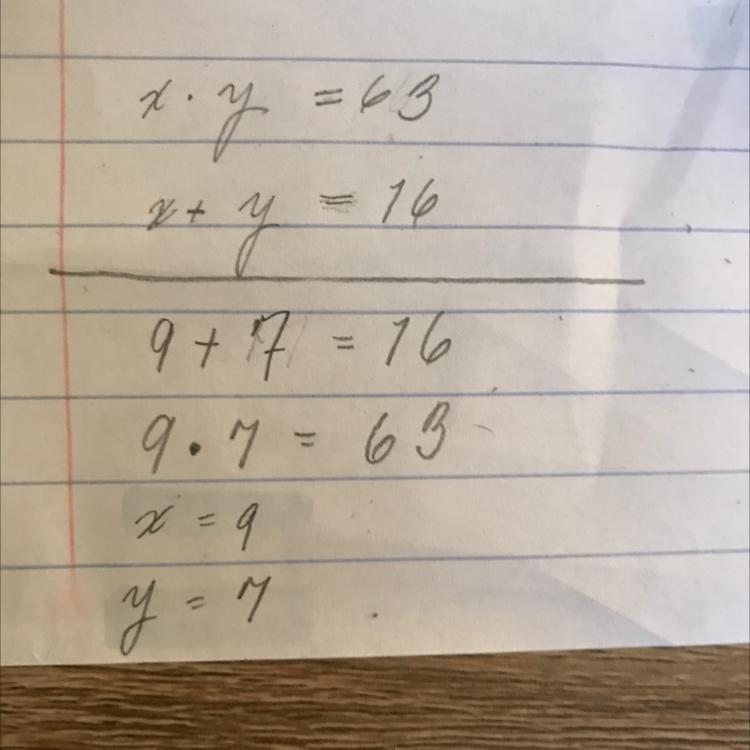 x · y = 63
x + y = 16
9 + 7 = 16
9 · 7 = 63
x = 9
y = 7